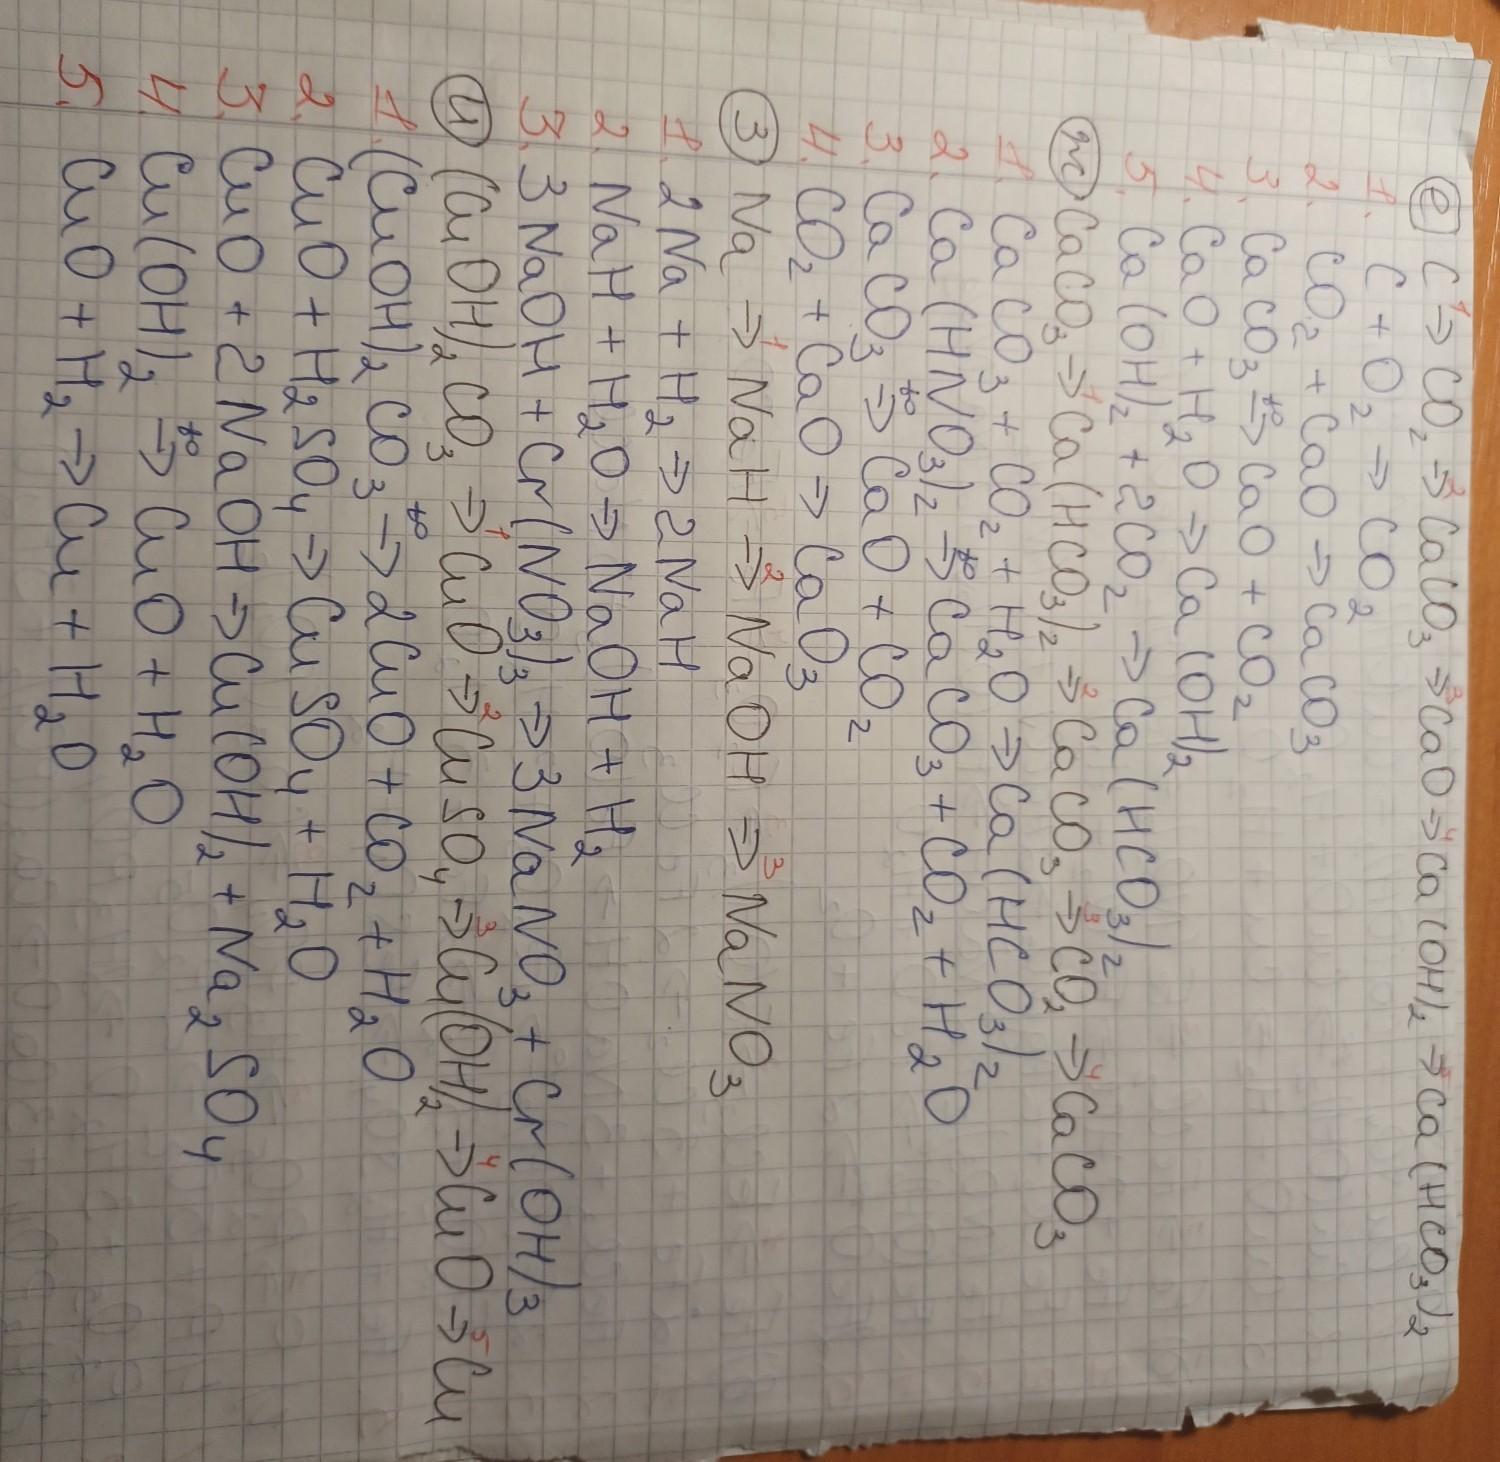 е) C →¹ CO₂ →² CaCO₃ →³ CaO →⁴ Ca(OH)₂ →⁵ Ca(HCO₃)₂
1. C + O₂ → CO₂
2. CO₂ + CaO → CaCO₃
3. CaCO₃ →t° CaO + CO₂
4. CaO + H₂O → Ca(OH)₂
5. Ca(OH)₂ + 2CO₂ → Ca(HCO₃)₂
ж) CaCO₃ →¹ Ca(HCO₃)₂ →² CaCO₃ →³ CO₂ →⁴ CaCO₃
1. CaCO₃ + CO₂ + H₂O → Ca(HCO₃)₂
2. Ca(HNO₃)₂ →t° CaCO₃ + CO₂ + H₂O
3. CaCO₃ →t° CaO + CO₂
4. CO₂ + CaO → CaO₃
З) Na →¹ NaH →² NaOH →³ NaNO₃
1. 2Na + H₂ → 2NaH
2. NaH + H₂O → NaOH + H₂
3. 3NaOH + Cr(NO₃)₃ → 3NaNO₃ + Cr(OH)₃
и) (CuOH)₂CO₃ →¹ CuO →² CuSO₄ →³ Cu(OH)₂ →⁴ CuO →⁵ Cu
1. (CuOH)₂CO₃ →t° 2CuO + CO₂ + H₂O
2. CuO + H₂SO₄ → CuSO₄ + H₂O
3. CuO + 2NaOH → Cu(OH)₂ + Na₂SO₄
4. Cu(OH)₂ →t° CuO + H₂O
5. CuO + H₂ → Cu + H₂O